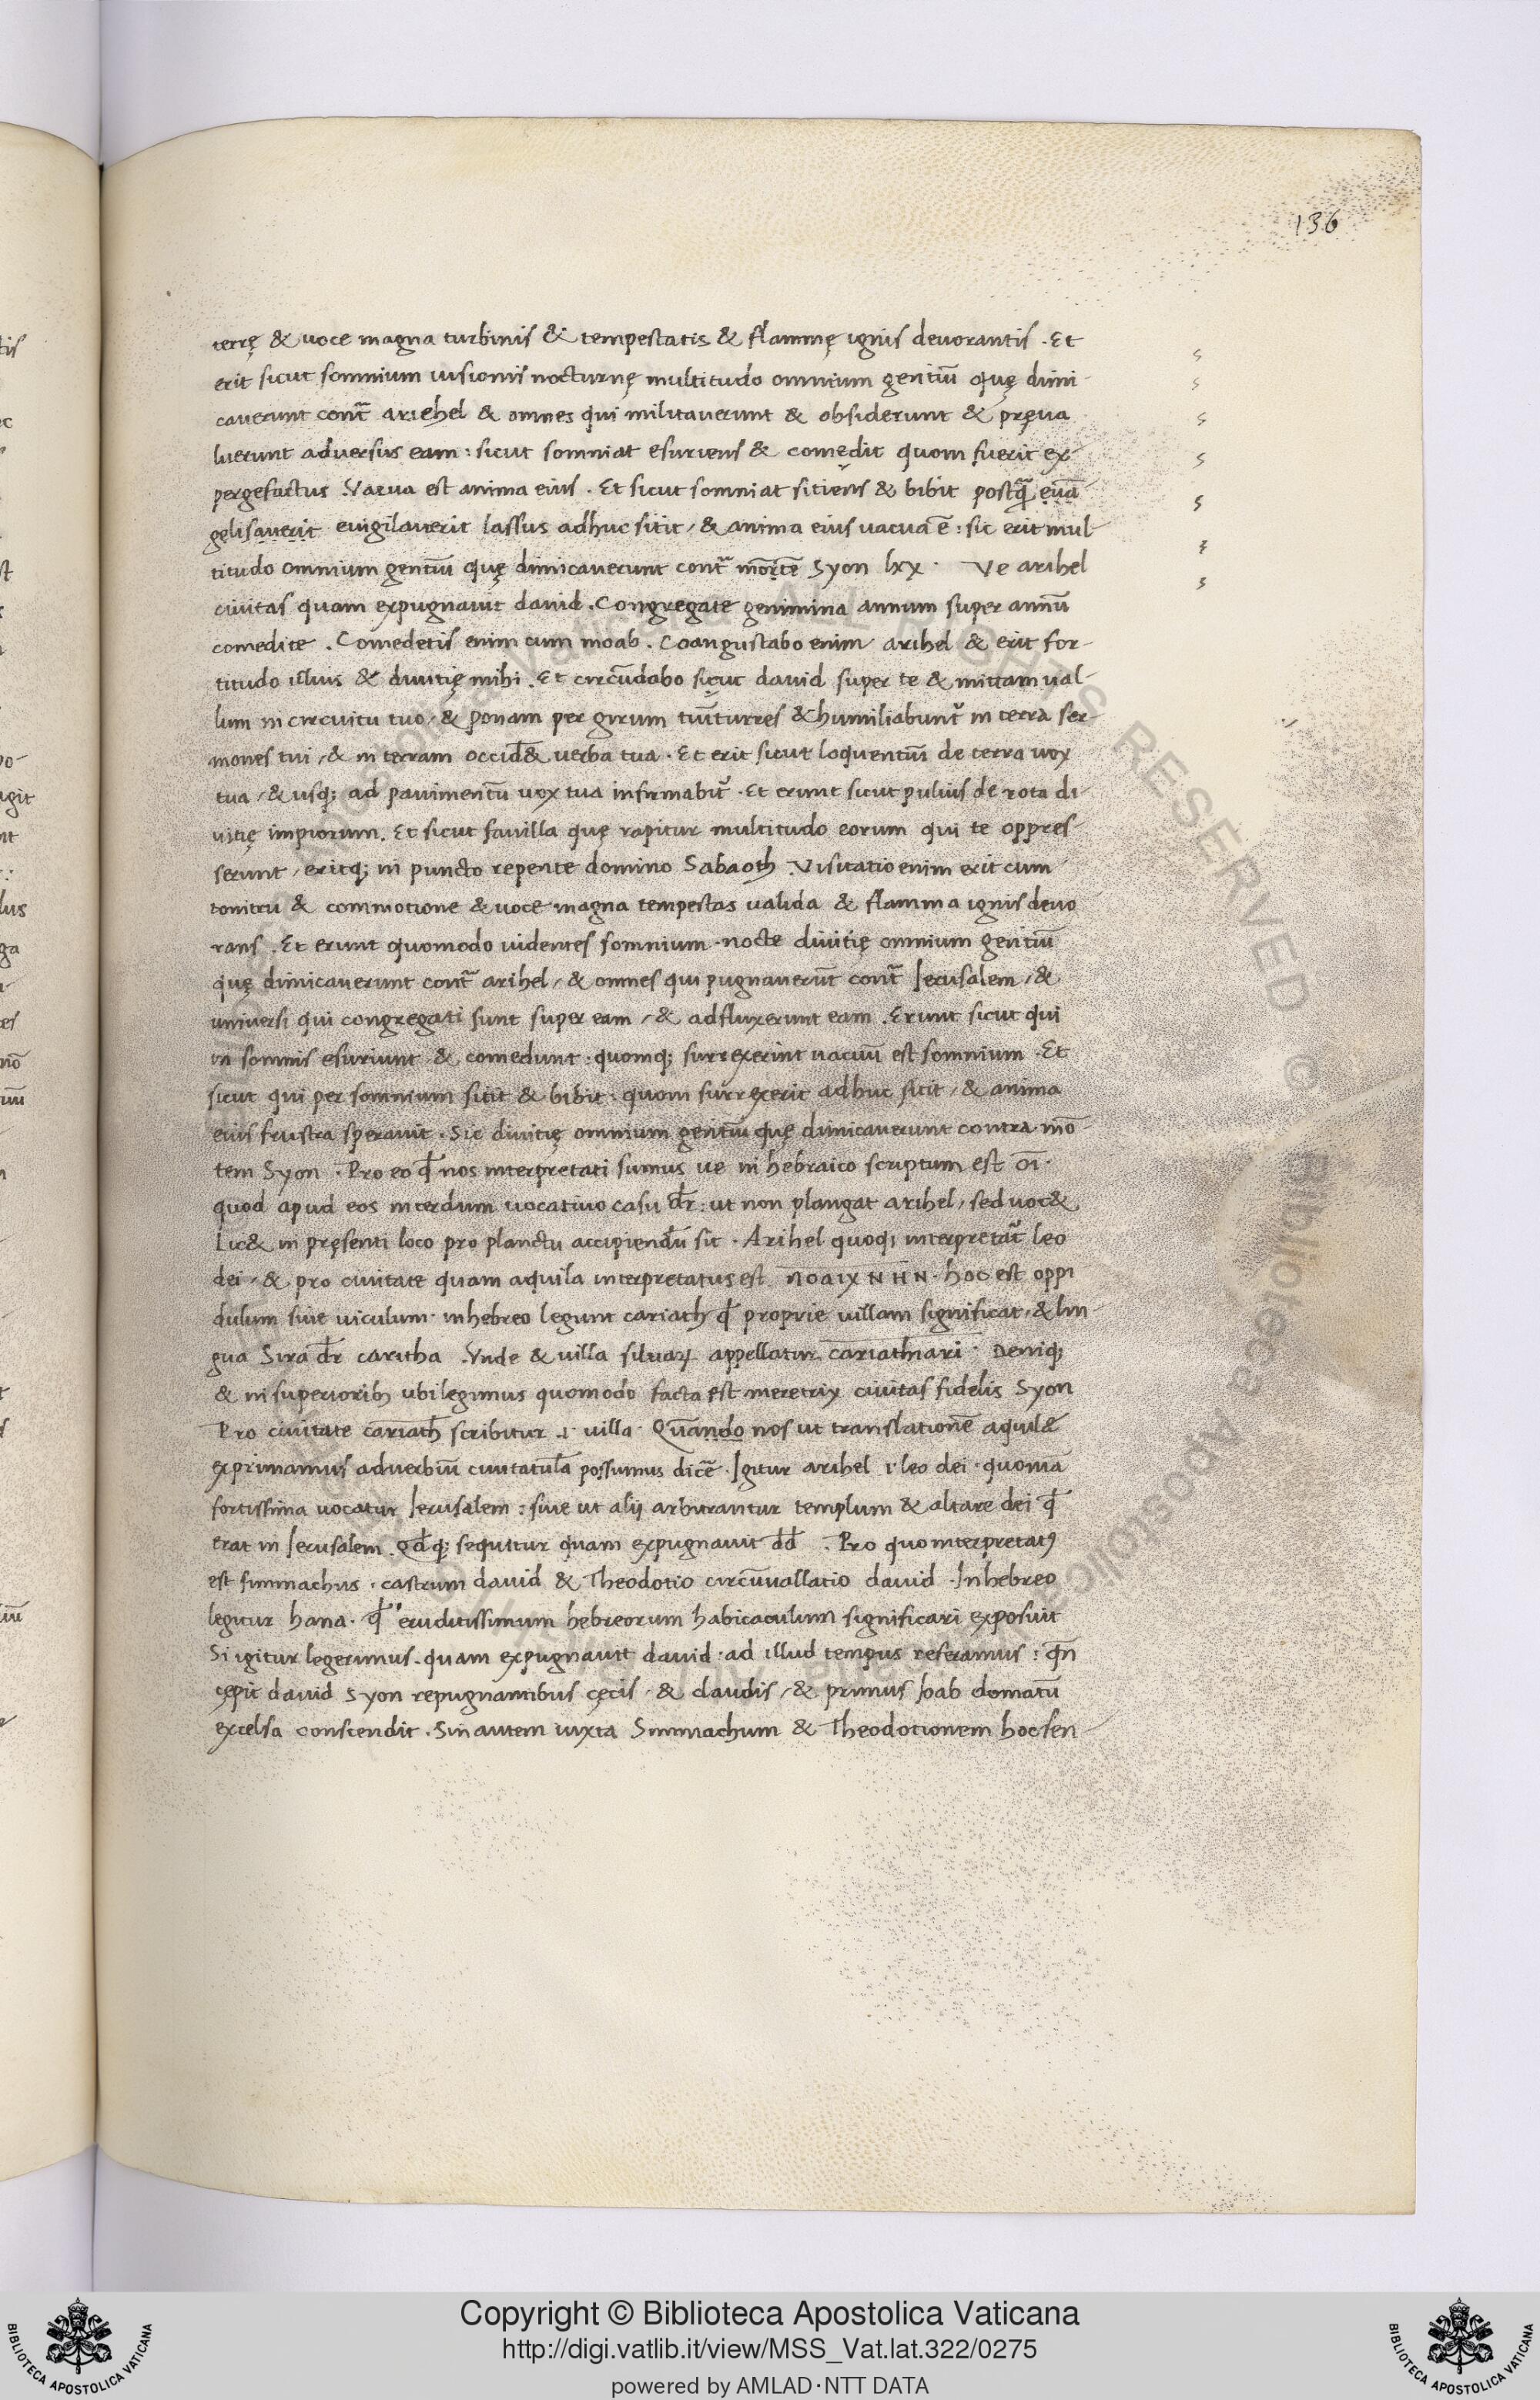 136
terrę & uoce magna turbinis & tempestatis & flammę ignis deuorantis . Et
erit sicut somnium uisionis nocturnę multitudo omnium gentiū quę dimi-
cauerunt cont̄ ariehel & omnes qui militauerunt & obsiderunt & pręua
luerunt aduersus eam : sicut somniat esuriens & comedit quom fuerit ex-
pergefactus . Vacua est anima eius . Et sicut somniat sitiens & bibit postq̄ euā
gelisauerit euigilauerit lassus adhuc sitit / & anima eius uacua ē : sic erit mul-
titudo omnium gentiū quę dimicauerunt cont̄ mōtē Syon lxx · Ve arihel
ciuitas quam expugnauit dauid . Congregate genimina annum super annū
comedite . Comedetis enim cum moab . Coangustabo enim arihel & erit for-
titudo illius & diuitię mihi . Et circūdabo sicut dauid super te & mittam ual-
lum in circuitu tuo / & ponam per girum tuū turres & humiliabunt̄ in terra ser-
mones tui / & in terram occid& uerba tua . Et erit sicut loquentiū de terra uox
tua / & usq; ad pauimentū uox tua infirmabit̄ . Et erunt sicut puluis de rota di
uitię impiorum . Et sicut fauilla quę rapitur multitudo eorum qui te oppres-
serunt / eritq; in puncto repente domino Sabaoth . Visitatio enim erit cum
tonitru & commotione & uoce magna tempestas ualida & flamma ignis deuo
rans . Et erunt quomodo uidentes somnium nocte diuitię omnium gentiū
quę dimicauerunt cont̄ arihel / & omnes qui pugnauerūt cont̄ Ierusalem / &
uniuersi qui congregati sunt super eam / & adfluxerunt eam . Erunt sicut qui
in somnis esuriunt & comedunt : quomq; surrexerint uacuū est somnium . Et
sicut qui per somnium sitit & bibit : quom surrexerit adhuc sitit / & anima
eius frustra sperauit . Sic diuitię omnium gentiū quę dimicauerunt contra mō-
tem Syon . Pro eo qđ nos interpretati sumus ue in hebraico scriptum est oi ·
quod apud eos interdum uocatiuo casu dr̄ : ut non plangat arihel / sed uoc&
Lic& in pręsenti loco pro planctu accipiendū sit . Arihel quoq; interpretat̄ leo
dei / & pro ciuitate quam aquila interpretatus est hoc est oppi
dulum siue uiculum · in hebreo legunt cariath qđ proprie uillam significat / & lin-
gua Sira dr̄ caritha . Vnde & uilla siluaꝝ appellatur cariathiari · Deniq;
& in superiorib; ubi legimus quomodo facta est meretrix ciuitas fidelis Syon
Pro ciuitate cariath scribitur .i. uilla · Quando nos ut translationē aquilæ
exprimamus aduerbiū ciuitatulā possumus dicē . Igitur arihel .i. leo dei · quoniā
fortissima uocatur Ierusalem : siue ut alij arbitrantur templum & altare dei qđ
erat in Ierusalem . Qđq; sequitur quam expugnauit dd̄ . Pro quo interpretatꝰ
est simmachus . castrum dauid & Theodotio circūuallatio dauid . In hebreo
legitur hana · qđ eruditissimum hebreorum habitaculum significari exposuit
Si igitur legerimus . quam expugnauit dauid · ad illud tempus referamus : qn̄
cępit dauid Syon repugnantibus cęcis / & claudis / & primus Ioab domatū
excelsa conscendit . Sin autem iuxta Simmachum & Theodotionem hoc sen-
Copyright © Biblioteca Apostolica Vaticana
http://digi.vatlib.it/view/MSS_Vat.lat.322/0275
powered by AMLAD·NTT DATA